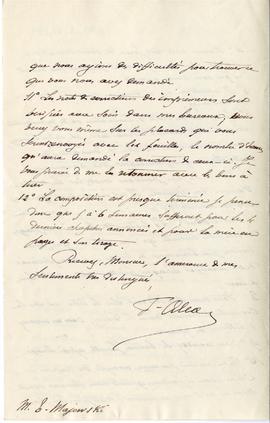 que nous ayions des difficultés pour trouver ce
que vous nous avez demandé.
11° Les notes de correction des imprimeurs sont
avec soin dans mes bureaux, vous
vous même sur les placards qui vous
avec les feuilles, le nombre d'heures
qu'aura demandé la correction de ceux-ci. Je
vous prierai de me les retourner avec le bon à
tirer
12° La composition est presque terminée, je pense
donc que 5 à 6 semaines suffiront pour les
derniers chapitres annoncés et pour la mise en
pages et le tirage.
Recevez, Monsieur, l'assurance de mes
sentiments très distingués,
F. Alcan
M. E. Majewski